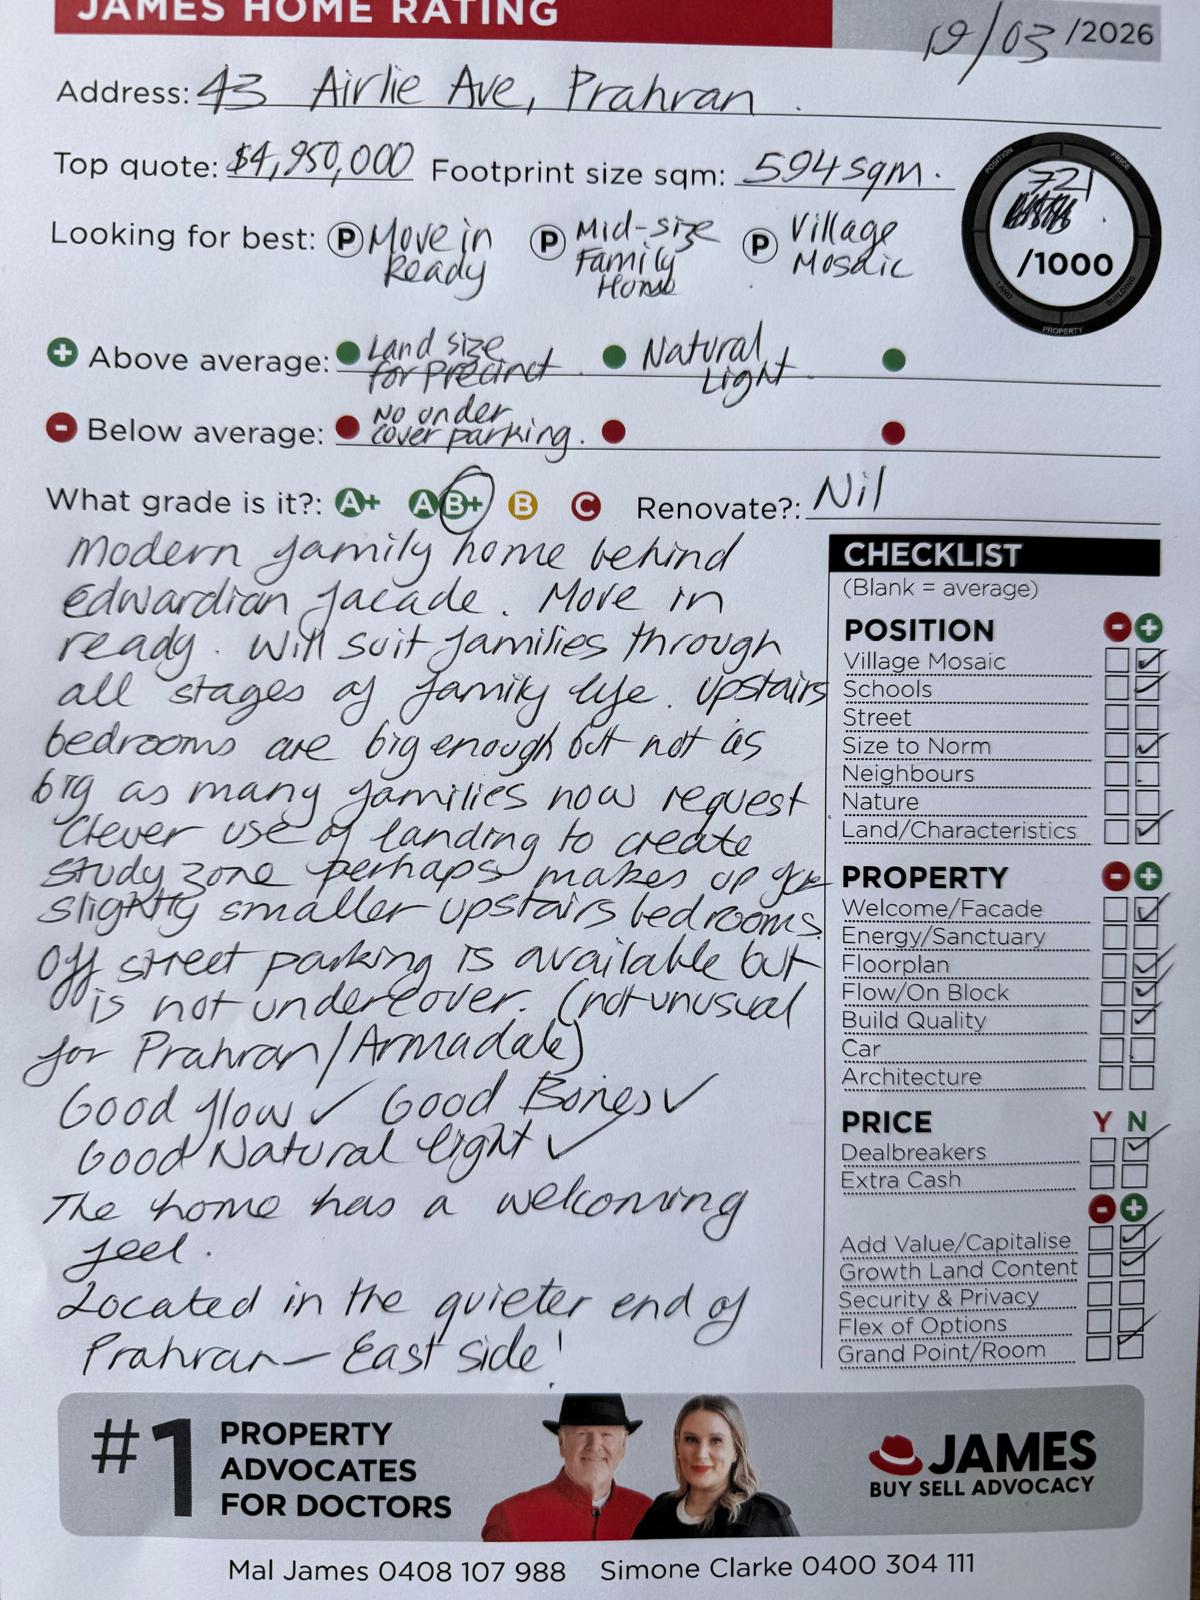 JAMES HOME RATING
19/03/2026
Address: 43 Airlie Ave, Prahran.
Top quote: $4,950,000 Footprint size sqm: 594sqm.
721
/1000
POSITION PRICE BUILDING PROPERTY LAND
Looking for best: P Move in Ready P Mid-size Family Home P Village Mosaic
+ Above average: Land size for Precinct. Natural Light.
- Below average: No under cover parking.
What grade is it?: A+ A B+ B C Renovate?: Nil
Modern family home behind
Edwardian facade. Move in
ready. Will suit families through
all stages of family life. Upstairs
bedrooms are big enough but not as
big as many families now request
Clever use of landing to create
study zone perhaps makes up for
slightly smaller upstairs bedrooms.
Off street parking is available but
is not undercover. (not unusual
for Prahran/Armadale)
Good flow ✓ Good Bones ✓
Good Natural light ✓
The home has a welcoming
feel.
Located in the quieter end of
Prahran - East side!
CHECKLIST
(Blank = average)
POSITION - +
Village Mosaic ✓
Schools ✓
Street
Size to Norm ✓
Neighbours
Nature
Land/Characteristics ✓
PROPERTY - +
Welcome/Facade ✓
Energy/Sanctuary
Floorplan ✓
Flow/On Block ✓
Build Quality ✓
Car
Architecture
PRICE Y N
Dealbreakers ✓
Extra Cash
- +
Add Value/Capitalise ✓
Growth Land Content ✓
Security & Privacy
Flex of Options
Grand Point/Room ✓
#1 PROPERTY
ADVOCATES
FOR DOCTORS
JAMES
BUY SELL ADVOCACY
Mal James 0408 107 988 Simone Clarke 0400 304 111